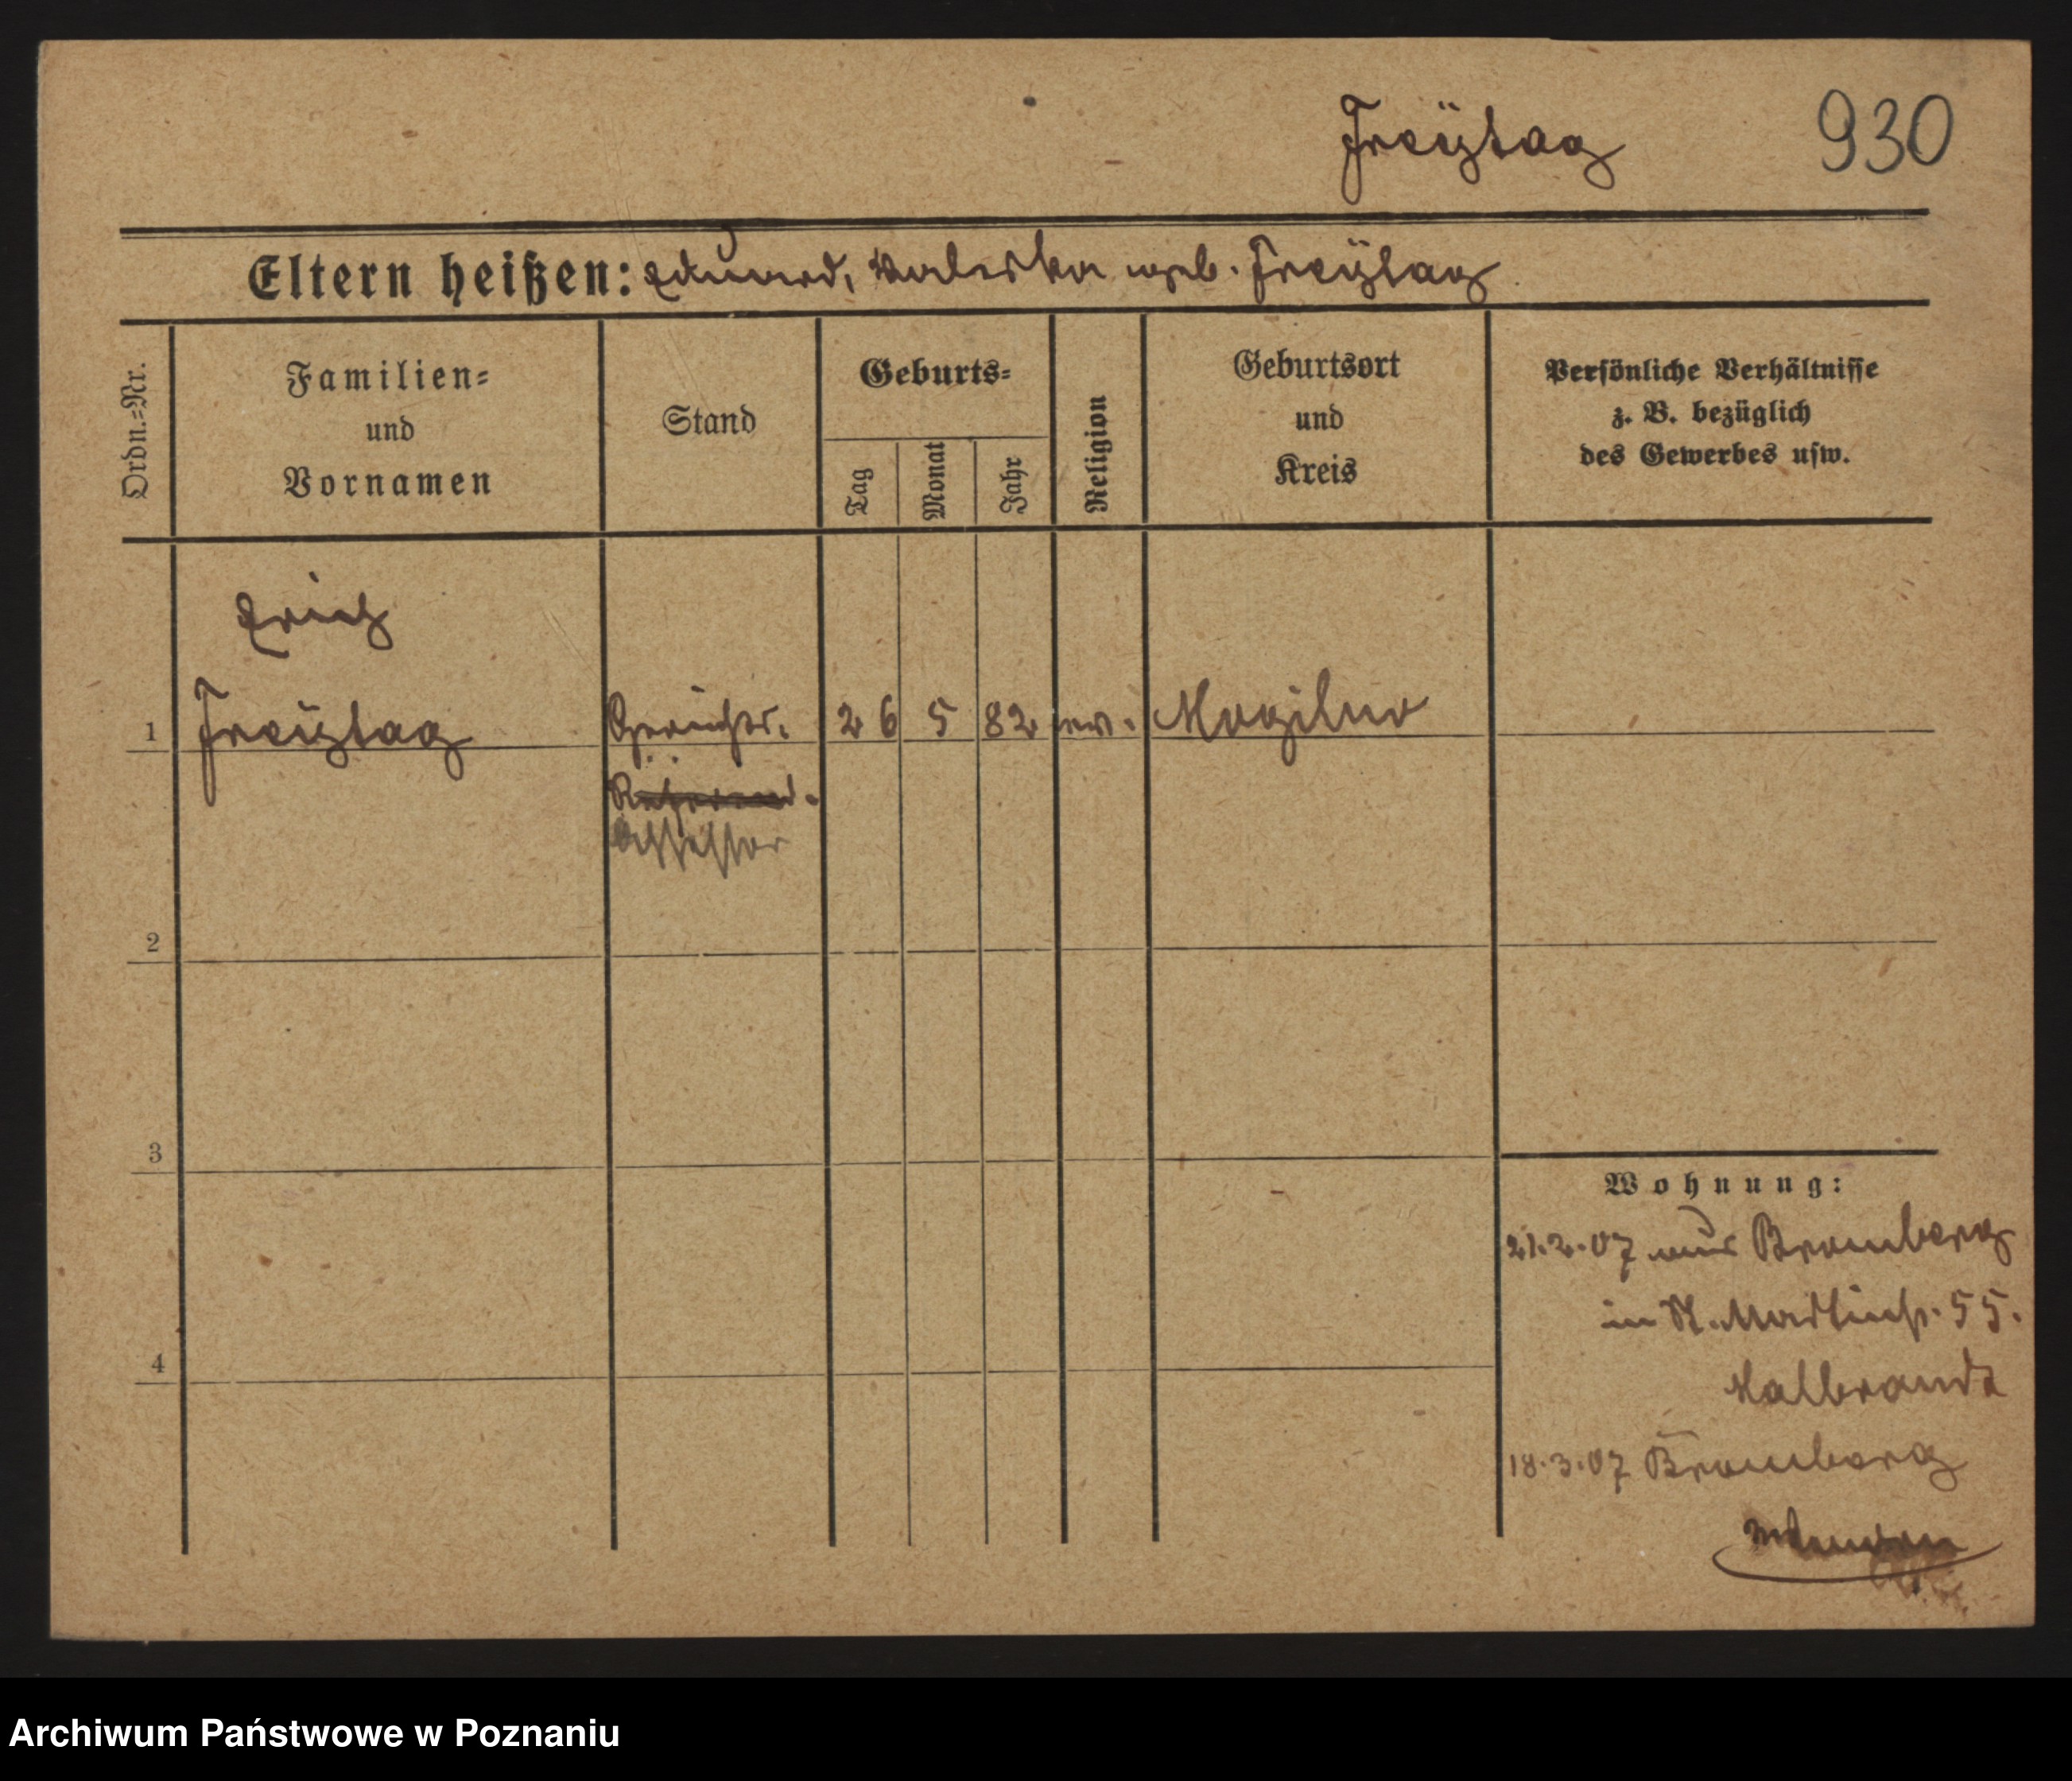 Freÿtag 930
Eltern heißen: Eduard, Valeska geb. Freÿtag
Ordn.=Nr.
Familien=
und
Vornamen
Stand
Geburts=
Tag
Monat
Jahr
Religion
Geburtsort
und
Kreis
Persönliche Verhältnisse
z. B. bezüglich
des Gewerbes usw.
Erich
1 Freÿtag Gerichts. 26 5 82 ev. Mogilno
Referend.
Assessor
2
3
Wohnung:
21.2.07 aus Bromberg
in St. Martinstr. 55.
4
Malbrandt
18.3.07 Bromberg
Archiwum Państwowe w Poznaniu